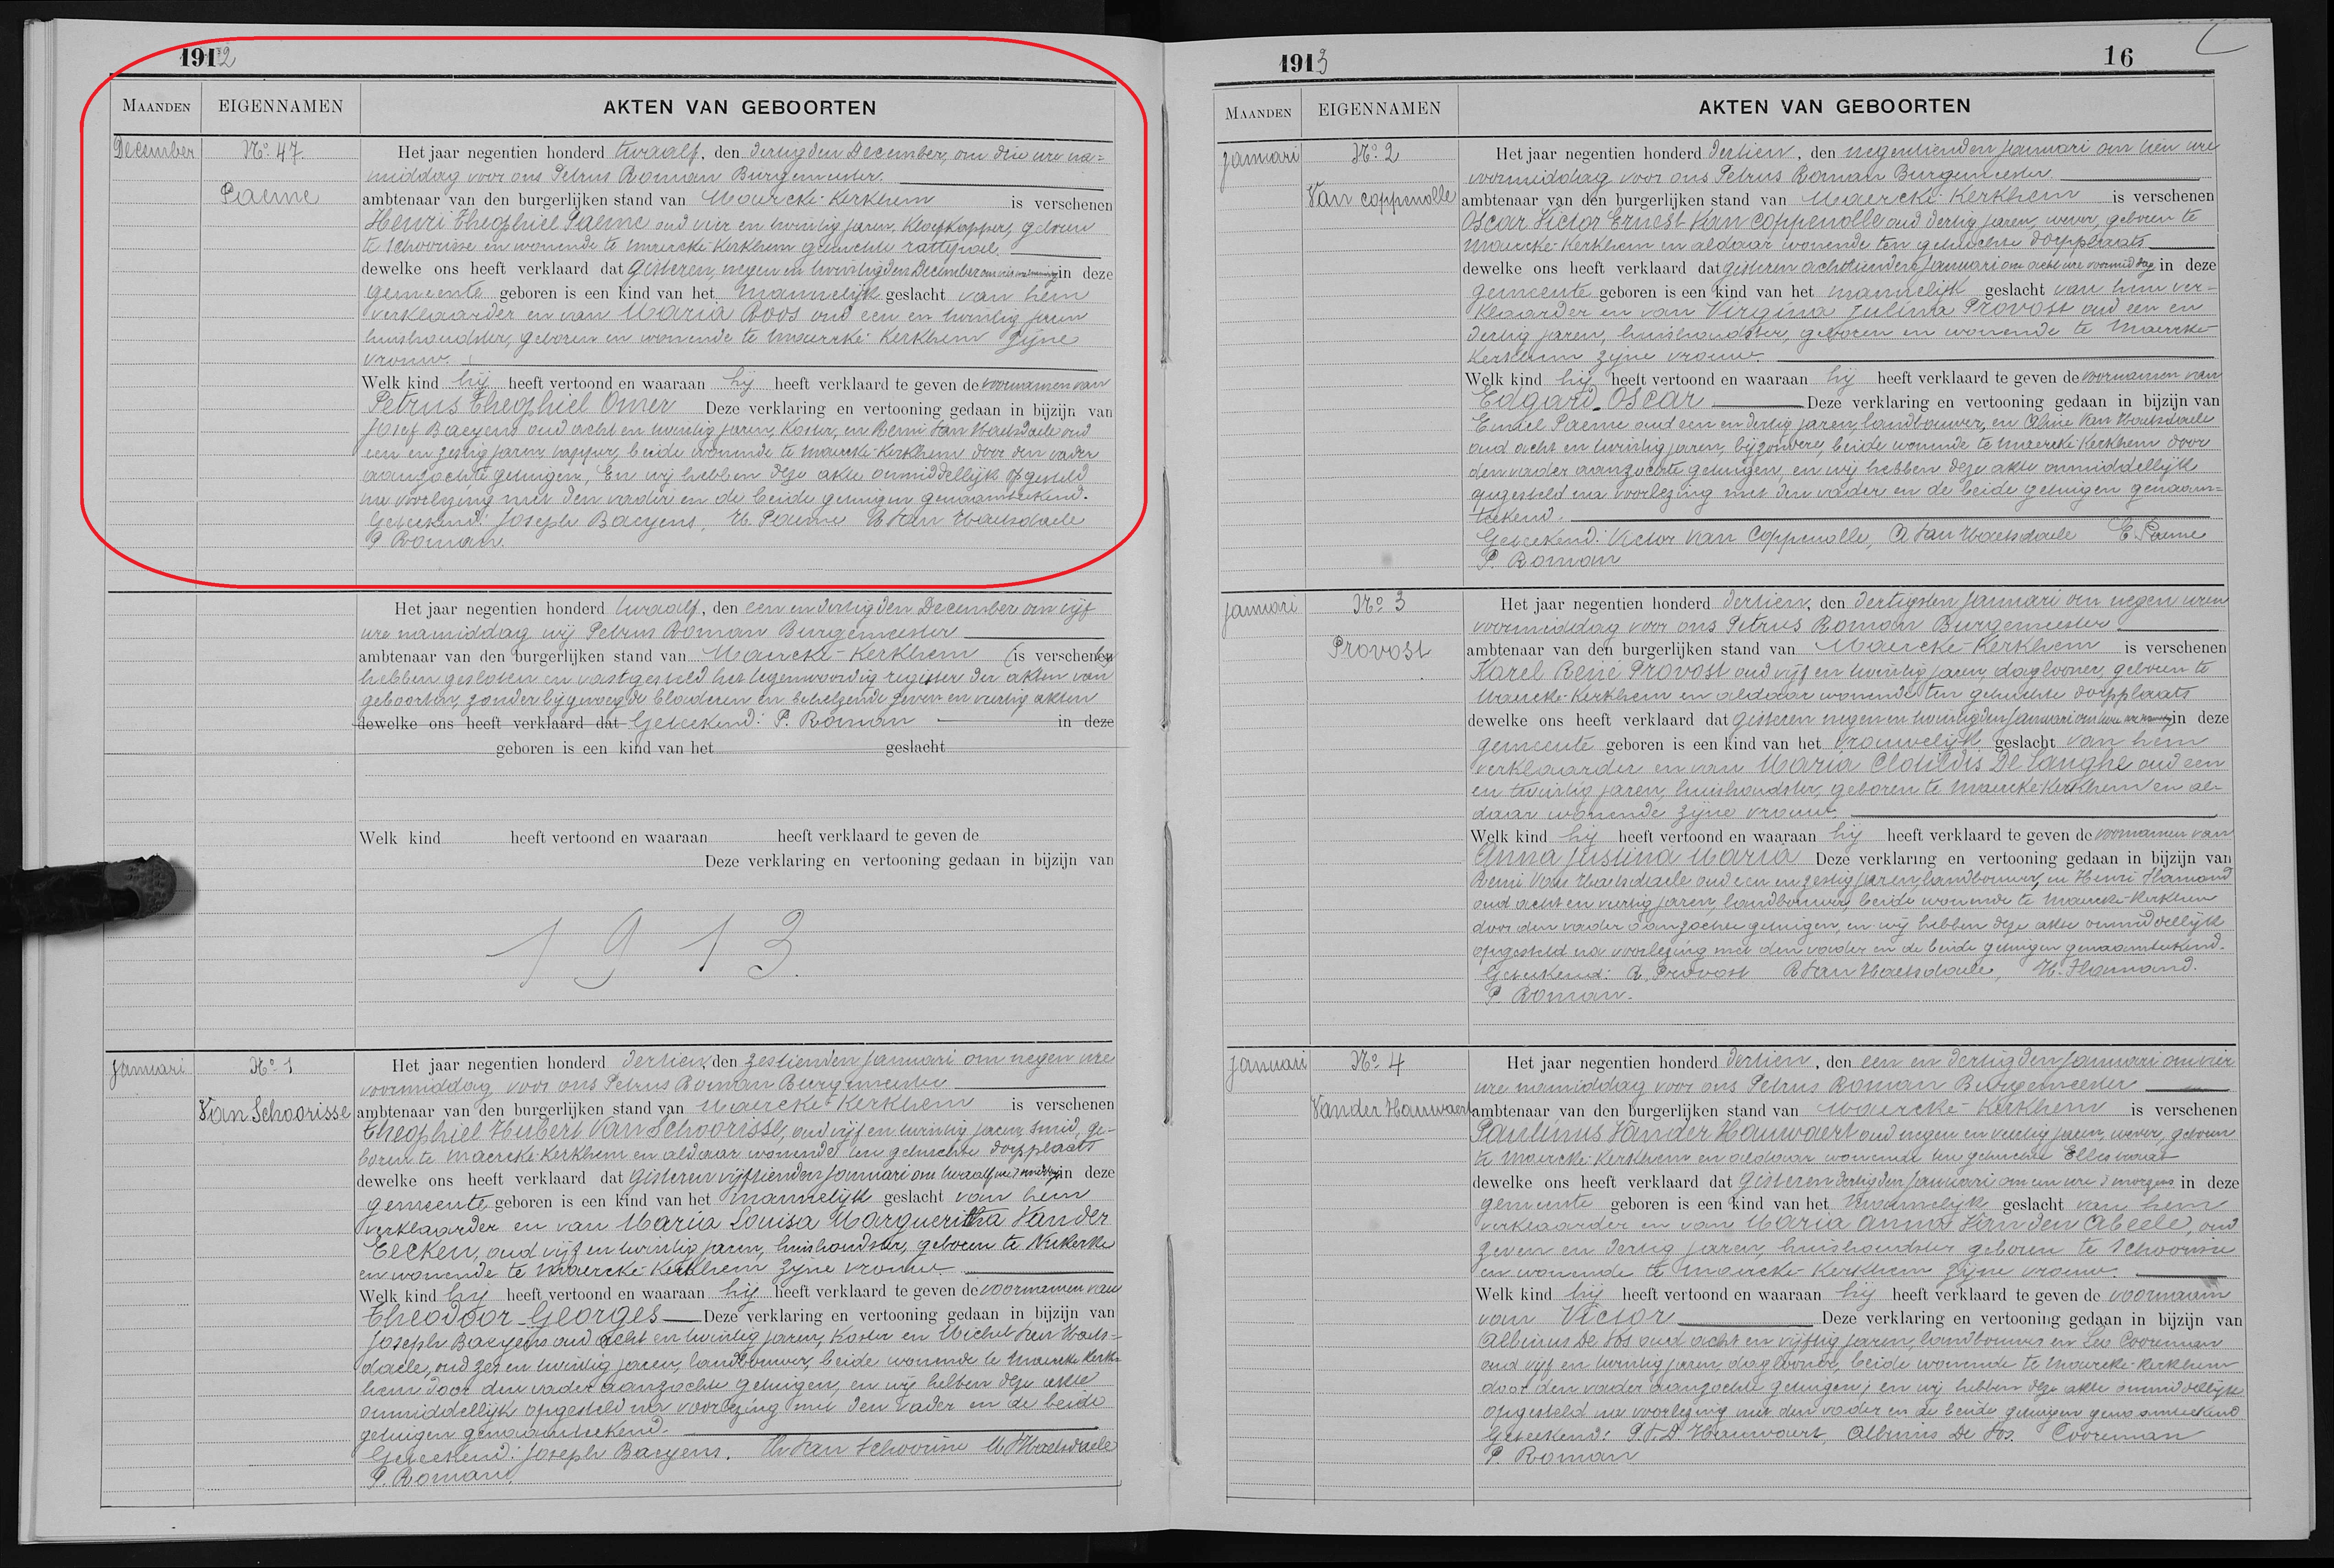 1912
MAANDEN EIGENNAMEN AKTEN VAN GEBOORTEN
December No. 47. Het jaar negentien honderd twaalf, den dertigden December, om drie ure na=
middag voor ons Petrus Roman Burgemeester.
Paeme ambtenaar van den burgerlijken stand van Maercke-Kerkhem is verschenen
Henri Theophiel Paeme oud vier en twintig jaren, Klopkapper, geboren
te Schoorisse en wonende te Maercke-Kerkhem gehuchte rattepoel.
dewelke ons heeft verklaard dat gisteren negen en twintigden December om in deze
gemeente geboren is een kind van het mannelijk geslacht van hem
verklaarder en van Maria Roos oud een en twintig jaren
huishoudster, geboren en wonende te Maercke-Kerkhem zijne
vrouw.
Welk kind hij heeft vertoond en waaraan hij heeft verklaard te geven de voornamen van
Petrus Theophiel Omer Deze verklaring en vertooning gedaan in bijzijn van
Josef Baeyens oud acht en twintig jaren, Koster, en Remi Van Haelsdaele oud
een en zestig jaren, beide wonende te Maercke-Kerkhem door den vader
aanzochte getuigen, En wij hebben deze akte onmiddellijk opgesteld
na voorlezing met den vader en de beide getuigen genaamteekend.
Geteekend: Joseph Baeyens, H. Paeme R Van Haelsdaele
P Roman.
Het jaar negentien honderd twaalf, den een en dertigden December om vijf
ure namiddag wij Petrus Roman Burgemeester
ambtenaar van den burgerlijken stand van Maercke-Kerkhem is verschenen
hebben gesloten en vastgesteld het tegenwoordig register der akten van
geboorten, zonder bijgevoegde bladeren en behelzende zeven en veertig akten
dewelke ons heeft verklaard dat Geteekend: P. Roman in deze
geboren is een kind van het geslacht
Welk kind heeft vertoond en waaraan heeft verklaard te geven de
Deze verklaring en vertooning gedaan in bijzijn van
1913.
Januari No 1 Het jaar negentien honderd dertien, den zestienden Januari om negen ure
voormiddag voor ons Petrus Roman Burgemeester
Van Schoorisse ambtenaar van den burgerlijken stand van Maercke-Kerkhem is verschenen
Theophiel Hubert Van Schoorisse, oud vijf en twintig jaren, smid, ge-
boren te Maercke-Kerkhem en aldaar wonende ten gehuchte dorpplaats
dewelke ons heeft verklaard dat gisteren vijftienden Januari om twaalf ure in deze
gemeente geboren is een kind van het mannelijk geslacht van hem
verklaarder en van Maria Louisa Margueritha Vander
Eecken, oud vijf en twintig jaren, huishoudster, geboren te Nukerke
en wonende te Maercke-Kerkhem zijne vrouw.
Welk kind hij heeft vertoond en waaraan hij heeft verklaard te geven de voornamen van
Theodoor Georges Deze verklaring en vertooning gedaan in bijzijn van
Joseph Baeyens oud acht en twintig jaren, Koster en Michel Van Haels-
daele, oud zes en twintig jaren, landbouwer, beide wonende te Maercke Kerk-
hem door den vader aanzochte getuigen, en wij hebben deze akte
onmiddellijk opgesteld na voorlezing met den vader en de beide
getuigen genaamteekend.
Geteekend: Joseph Baeyens. Th Van Schoorisse M V Haelsdaele
P. Roman.
1913 16
MAANDEN EIGENNAMEN AKTEN VAN GEBOORTEN
Januari No 2 Het jaar negentien honderd dertien, den negentienden Januari om tien ure
voormiddag voor ons Petrus Roman Burgemeester
Van Coppenolle ambtenaar van den burgerlijken stand van Maercke-Kerkhem is verschenen
Oscar Victor Ernest Van Coppenolle oud dertig jaren, wever, geboren te
Maercke-Kerkhem en aldaar wonende ten gehuchte dorpplaats
dewelke ons heeft verklaard dat gisteren achttienden Januari om acht ure voormiddag in deze
gemeente geboren is een kind van het mannelijk geslacht van hem ver-
klaarder en van Virginia Julina Provost oud een en
dertig jaren, huishoudster, geboren en wonende te Maercke-
Kerkhem zijne vrouw.
Welk kind hij heeft vertoond en waaraan hij heeft verklaard te geven de voornamen van
Edgard Oscar Deze verklaring en vertooning gedaan in bijzijn van
Emiel Paeme oud een en dertig jaren, landbouwer, en Van Haelsdaele
oud acht en twintig jaren, bijzondere, beide wonende te Maercke-Kerkhem door
den vader aanzochte getuigen, en wij hebben deze akte onmiddellijk
opgesteld na voorlezing met den vader en de beide getuigen genaam=
teekend.
Geteekend: Victor Van Coppenolle, A Van Haelsdaele E. Paeme
P. Roman
Januari No 3 Het jaar negentien honderd dertien, den dertigsten Januari om negen uren
voormiddag voor ons Petrus Roman Burgemeester
Provost ambtenaar van den burgerlijken stand van Maercke-Kerkhem is verschenen
Karel René Provost oud vijf en twintig jaren, daglooner, geboren te
Maercke-Kerkhem en aldaar wonende ten gehuchte dorpplaats
dewelke ons heeft verklaard dat gisteren negen en twintigden Januari om in deze
gemeente geboren is een kind van het vrouwelijk geslacht van hem
verklaarder en van Maria Clotildis De Langhe oud een
en twintig jaren, huishoudster, geboren te Maercke-Kerkhem en al-
daar wonende zijne vrouw.
Welk kind hij heeft vertoond en waaraan hij heeft verklaard te geven de voornamen van
Anna Justina Maria Deze verklaring en vertooning gedaan in bijzijn van
Remi Van Haelsdaele oud een en zestig jaren, landbouwer, en Henri Hamond
oud acht en veertig jaren, landbouwer, beide wonende te Maercke-Kerkhem
door den vader aanzochte getuigen, en wij hebben deze akte onmiddellijk
opgesteld na voorlezing met den vader en de beide getuigen genaamteekend.
Geteekend: R. Provost R Van Haelsdaele, H. Hamond.
P. Roman.
Januari No 4 Het jaar negentien honderd dertien, den een en dertigden Januari om vier
ure namiddag voor ons Petrus Roman Burgemeester
Vander Hauwaert ambtenaar van den burgerlijken stand van Maercke-Kerkhem is verschenen
Paulinus Vander Hauwaert oud negen en veertig jaren, wever, geboren
te Maercke-Kerkhem en aldaar wonende ten gehuchte Ellestraat
dewelke ons heeft verklaard dat gisteren dertigden Januari om een ure 's morgens in deze
gemeente geboren is een kind van het mannelijk geslacht van hem
verklaarder en van Maria Anna Van den Abeele, oud
zeven en dertig jaren, huishoudster geboren te Schoorisse
en wonende te Maercke-Kerkhem zijne vrouw.
Welk kind hij heeft vertoond en waaraan hij heeft verklaard te geven de voornaam
van Victor Deze verklaring en vertooning gedaan in bijzijn van
Albinus De Vos oud acht en vijftig jaren, landbouwer en Leo Cooreman
oud vijf en twintig jaren, daglooner, beide wonende te Maercke-Kerkhem
door den vader aanzochte getuigen; en wij hebben deze akte onmiddellijk
opgesteld na voorlezing met den vader en de beide getuigen genaamteekend
Geteekend: P. V. D Hauwaert, Albinus De Vos. Cooreman
P. Roman